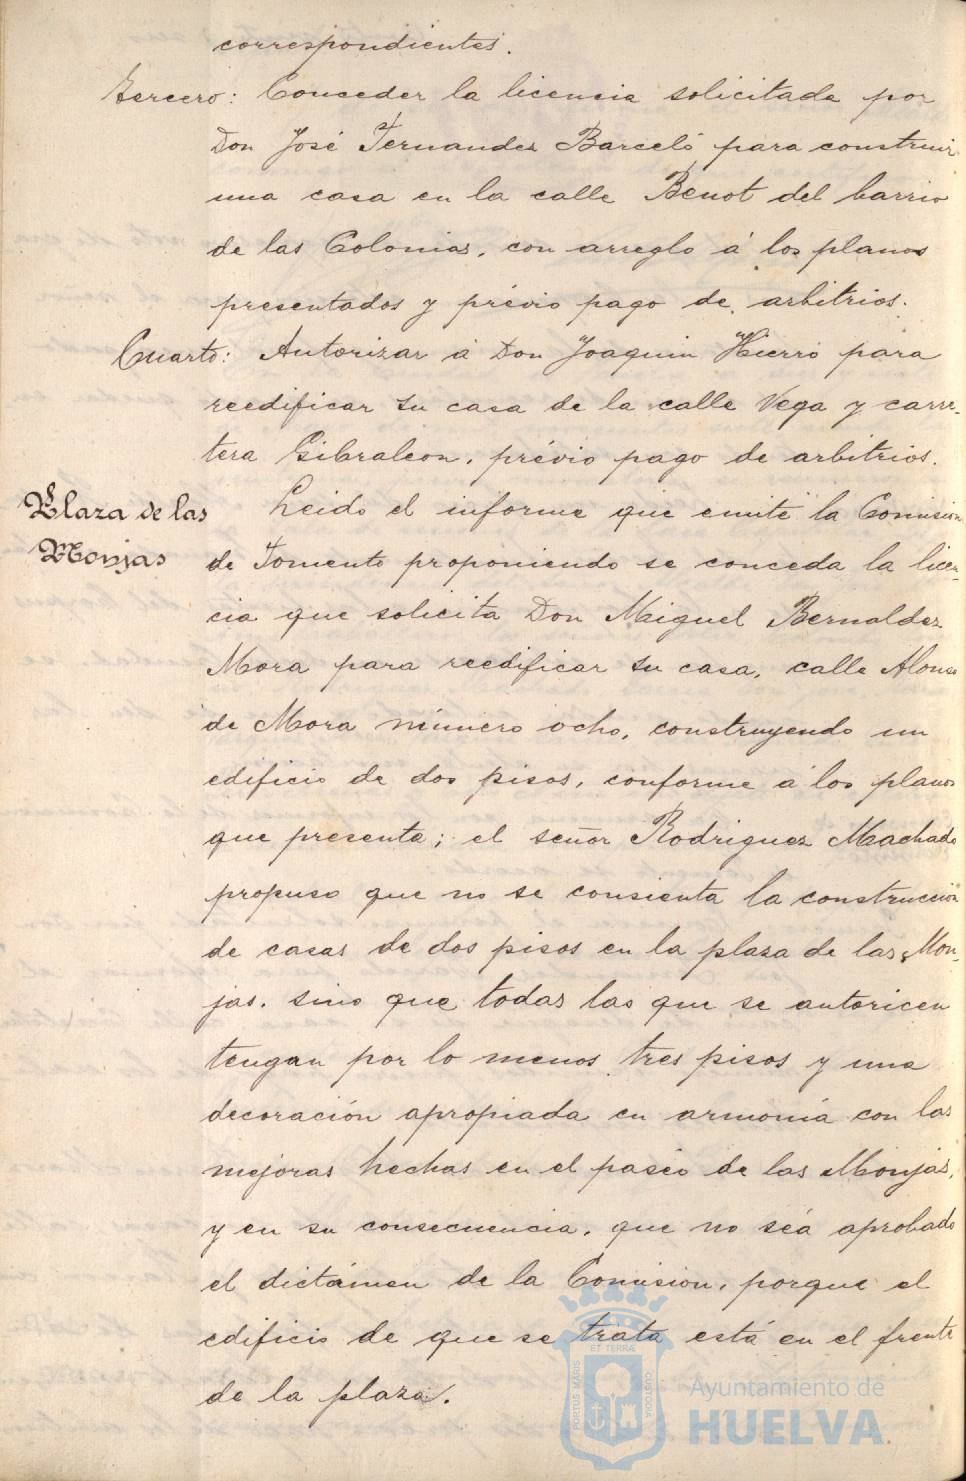 correspondientes.
Tercero: Conceder la licencia solicitada por
Don José Fernandes Barceló para construir
una casa en la calle Benot del barrio
de las Colonias, con arreglo á los planos
presentados y prévio pago de arbitrios.
Cuarto: Autorizar á Don Joaquin Hierro para
reedificar su casa de la calle Vega y carre-
tera Gibraleon, prévio pago de arbitrios.
Plaza de las
Monjas
Leido el informe que emite la Comision
de Fomento proponiendo se conceda la licen-
cia que solicita Don Miguel Bernaldez
Mora para reedificar su casa, calle Alonso
de Mora número ocho, construyendo un
edificio de dos pisos, conforme á los planos
que presenta; el señor Rodriguez Machado
propuso que no se consienta la construccion
de casas de dos pisos en la plaza de las Mon-
jas, sino que todas las que se autoricen
tengan por lo menos tres pisos y una
decoración apropiada en armonía con las
mejoras hechas en el paseo de las Monjas,
y en su consecuencia, que no séa aprobado
el dictámen de la Comision, porque el
edificio de que se trata está en el frente
de la plaza.
PORTUS MARIS
ET TERRÆ
CUSTODIA
Ayuntamiento de
HUELVA